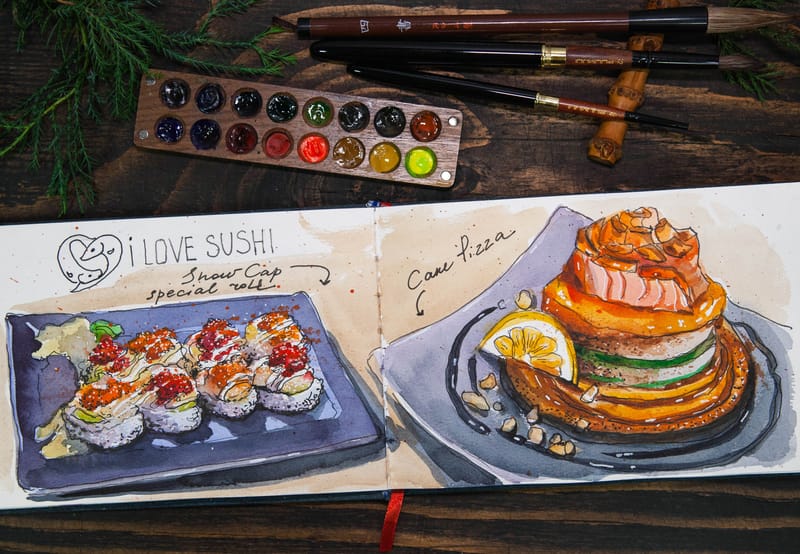 i LOVE SUSHI
Snow Cap
special roll
Cane Pizza